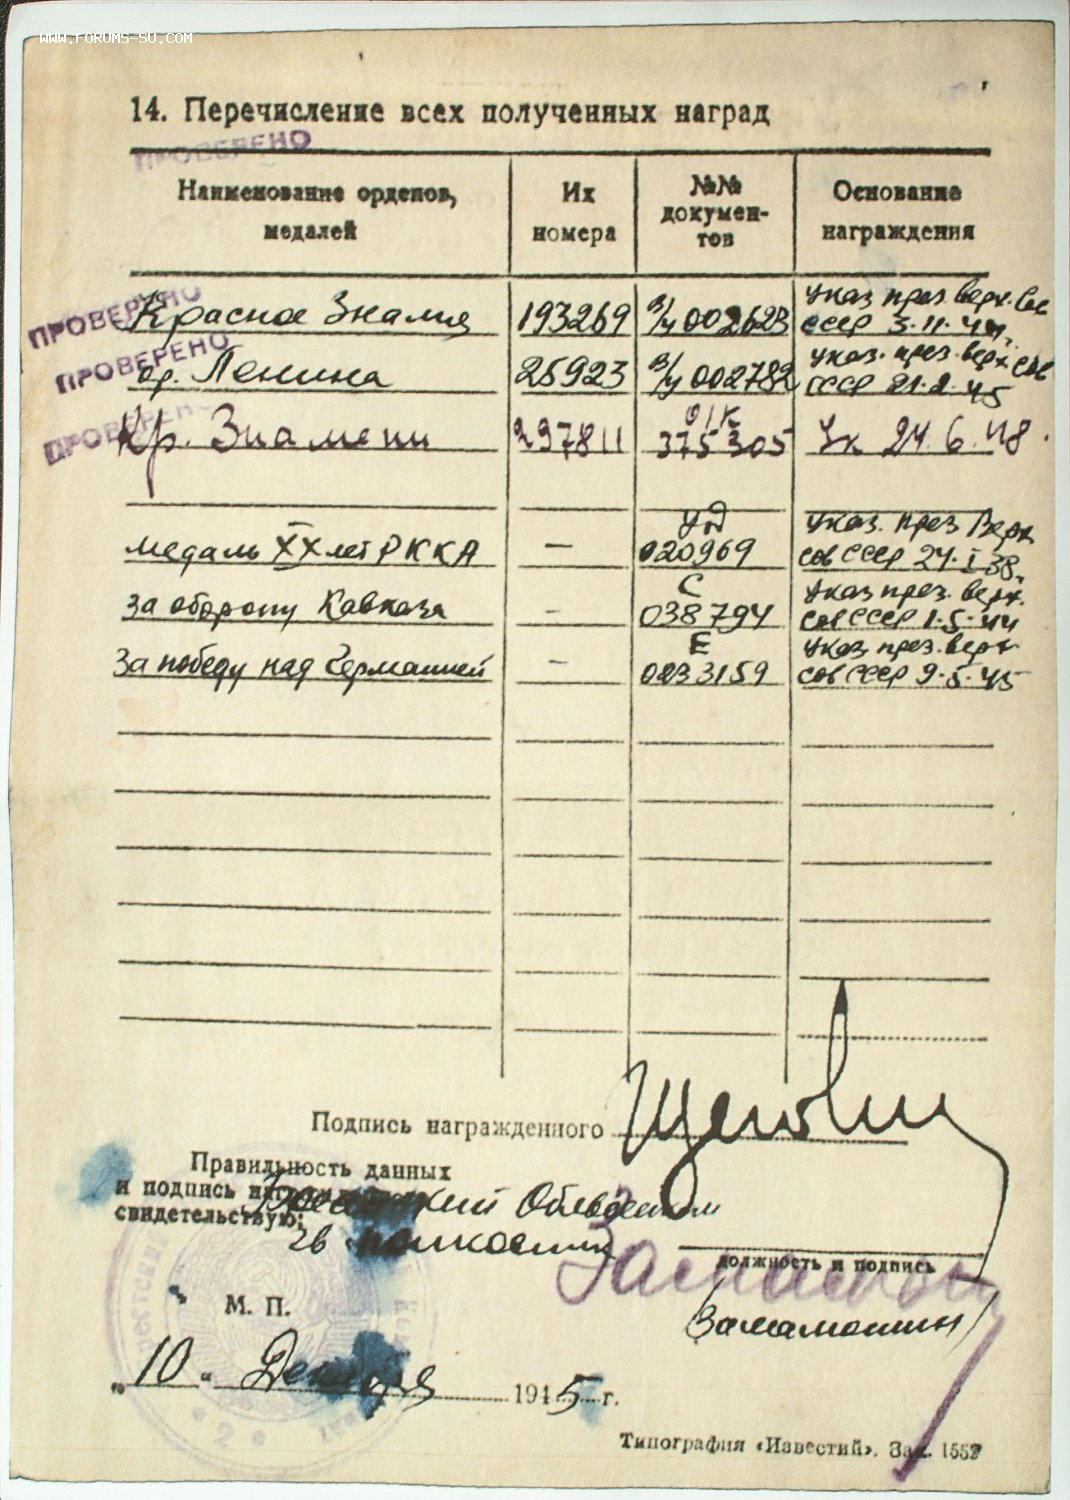 www.forums-su.com
14. Перечисление всех полученных наград
ПРОВЕРЕНО
Наименование орденов, медалей
Их номера
№№ документов
Основание награждения
ПРОВЕРЕНО
Красное Знамя 193269 в/ч 002623 Указ през. верх. Сов СССР 3.11.44г.
ПРОВЕРЕНО
ор. Ленина 25923 в/ч 002782 Указ. през. верх сов СССР 21.2.45
ПРОВЕРЕНО
Кр. Знамени 297811 о/к 375305 Ук 24.6.48.
медаль XX лет РККА — УД 020969 Указ. през Верх сов СССР 24.I.38г.
За оборону Кавказа — С 038794 Указ през. верх. сов СССР 1.5.44
За победу над Германией — Е 0233159 Указ през. верх сов СССР 9.5.45
Подпись награжденного
Правильность данных
и подпись награжденного
свидетельствую:
Облвоенком
гв полковник
должность и подпись
М. П.
„10“ Декабря 1945 г.
Типография «Известий». Зак. 1552